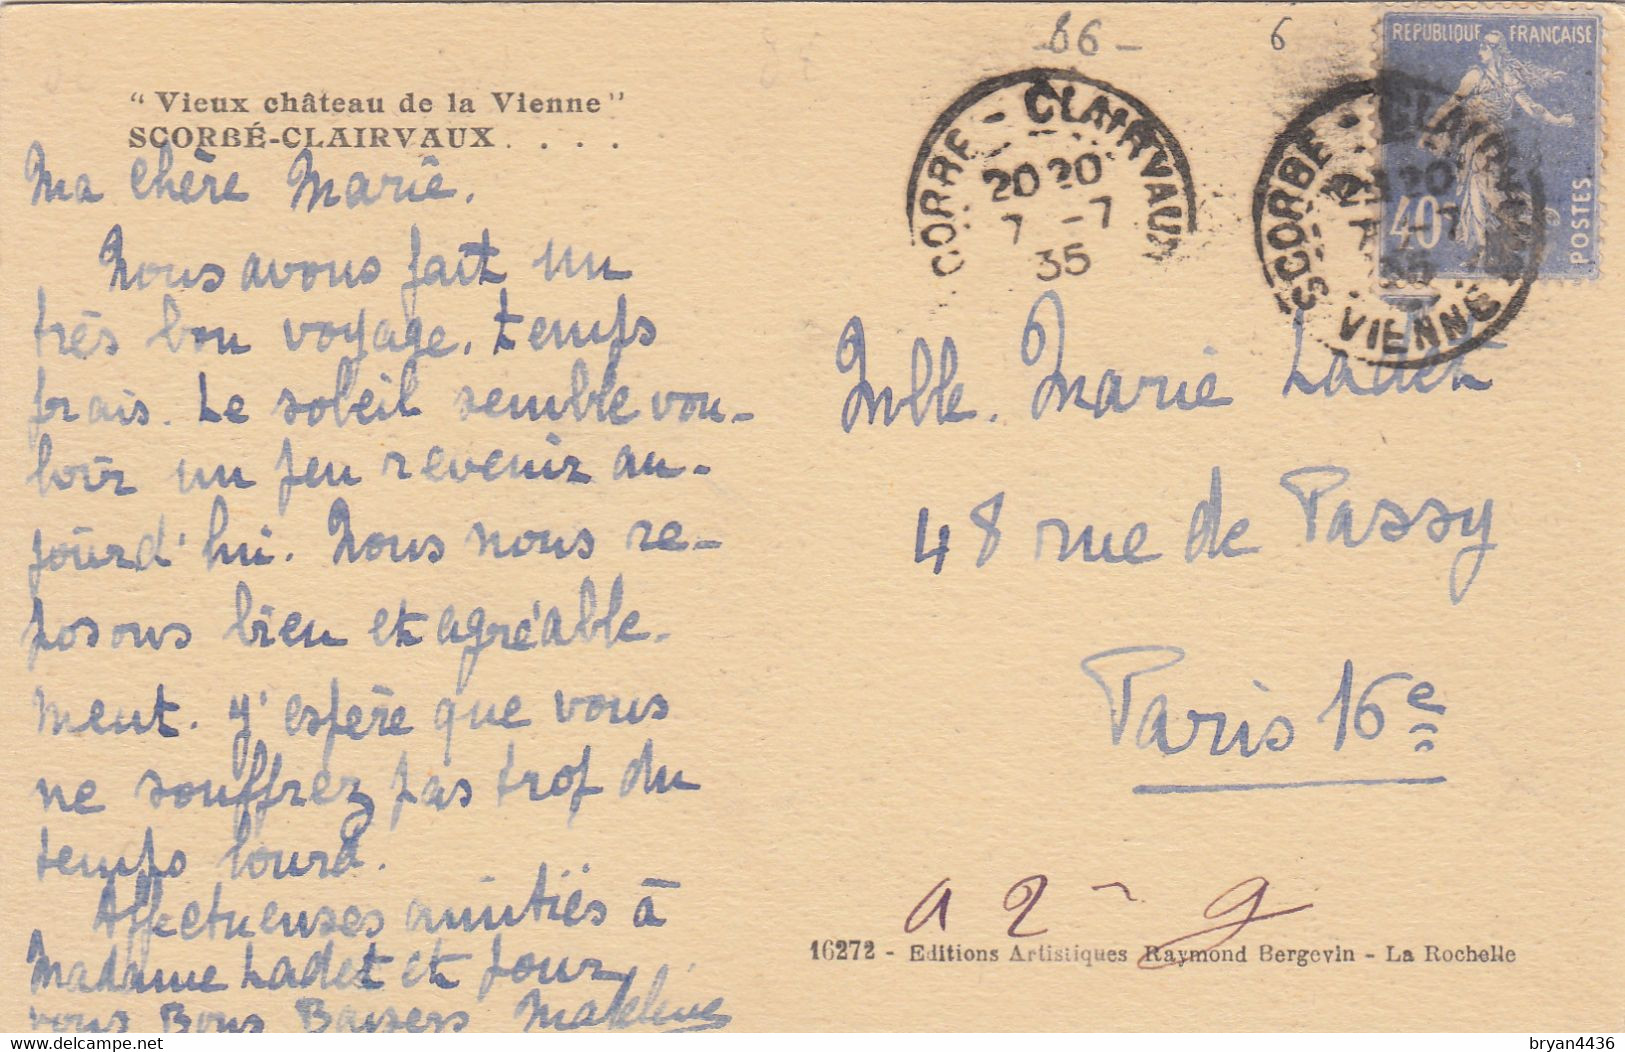 -86-
6
REPUBLIQUE FRANÇAISE
40
POSTES
"Vieux château de la Vienne"
SCORBÉ-CLAIRVAUX....
SCORBE - CLAIRVAUX
20 20
7 -7
35
SCORBE - CLAIRVAUX
7 -7
VIENNE
Ma chère Marie.
Nous avons fait un
très bon voyage. temps
frais. Le soleil semble vou-
loir un peu revenir au-
jourd'hui. Nous nous re-
posons bien et agréable-
ment. J'espère que vous
ne souffrez pas trop du
temps lourd.
Affectueuses amitiés à
Madame Ladet et pour
vous Bons Baisers Madeleine
Mlle. Marie Ladet
48 rue de Passy
Paris 16e
a 2 - g
16272 - Editions Artistiques Raymond Bergevin - La Rochelle
bryan4436